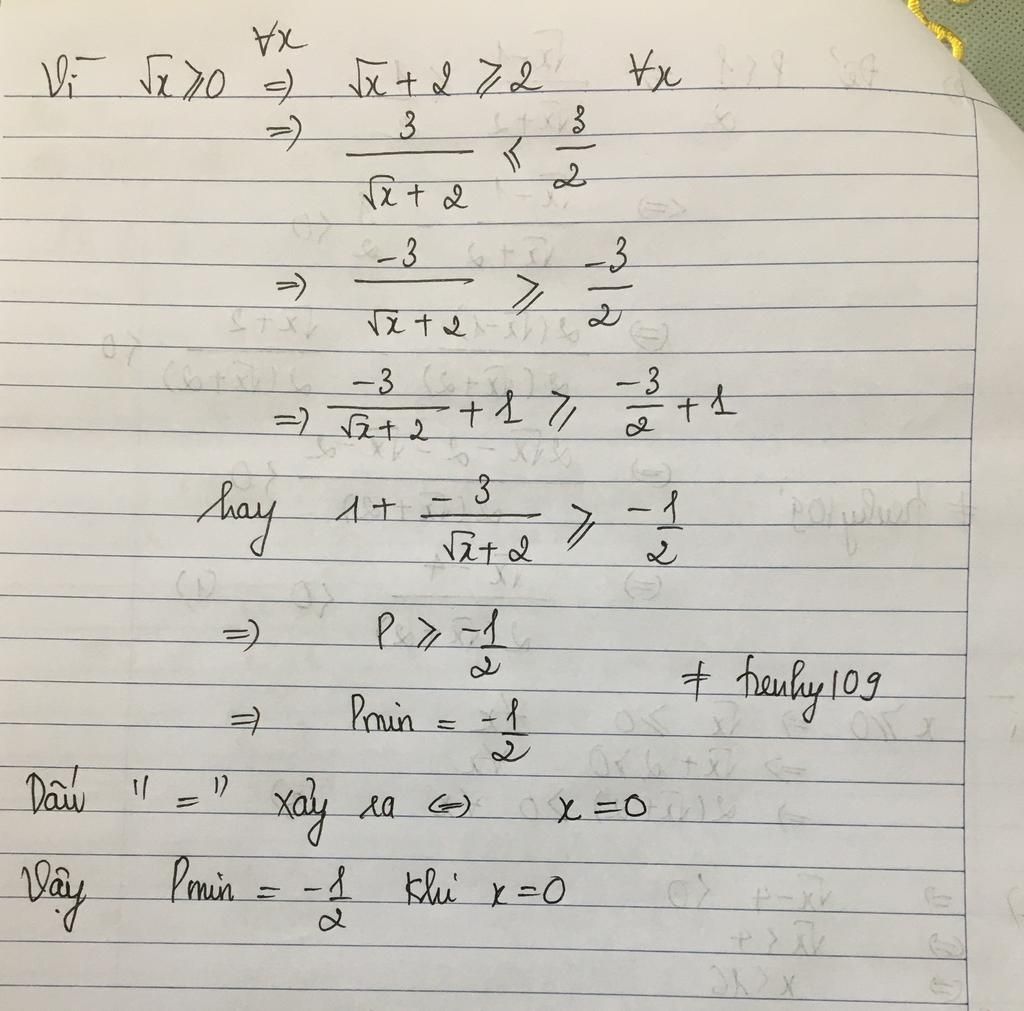 ∀x
Vì √x ⩾ 0 => √x + 2 ⩾ 2 ∀x
=> 3/(√x + 2) ⩽ 3/2
=> -3/(√x + 2) ⩾ -3/2
=> -3/(√x + 2) + 1 ⩾ -3/2 + 1
hay 1 + -3/(√x + 2) ⩾ -1/2
=> P ⩾ -1/2
=> Pmin = -1/2
Dấu "=" xảy ra <=> x = 0
Vậy Pmin = -1/2 khi x = 0